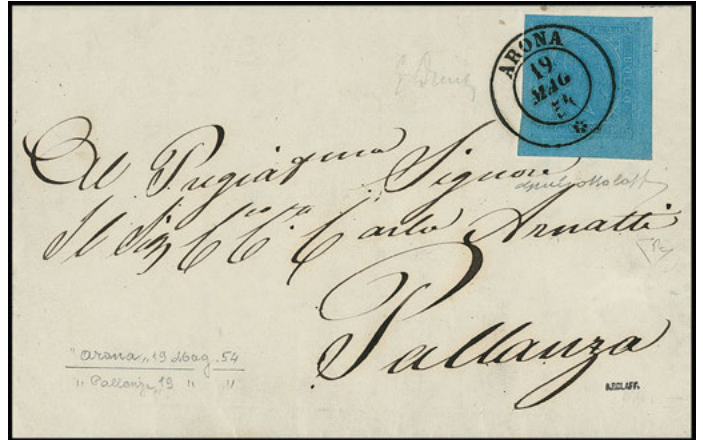 ARONA
19
MAG
54
BOLLO
Al Pregiatmo Signore
Il Sig Carlo Arnatti
Pallanza
"Arona„ 19 Mag. 54
" Pallanza„ 19 " "
A.BOLAFF.